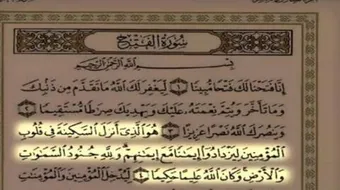 سُورَةُ الفَتْحِ
بِسْمِ ٱللَّهِ ٱلرَّحْمَٰنِ ٱلرَّحِيمِ
إِنَّا فَتَحْنَا لَكَ فَتْحًا مُّبِينًا ١ لِّيَغْفِرَ لَكَ ٱللَّهُ مَا تَقَدَّمَ مِن ذَنۢبِكَ
وَمَا تَأَخَّرَ وَيُتِمَّ نِعْمَتَهُۥ عَلَيْكَ وَيَهْدِيَكَ صِرَٰطًا مُّسْتَقِيمًا ٢
وَيَنصُرَكَ ٱللَّهُ نَصْرًا عَزِيزًا ٣ هُوَ ٱلَّذِىٓ أَنزَلَ ٱلسَّكِينَةَ فِى قُلُوبِ
ٱلْمُؤْمِنِينَ لِيَزْدَادُوٓا۟ إِيمَٰنًا مَّعَ إِيمَٰنِهِمْ وَلِلَّهِ جُنُودُ ٱلسَّمَٰوَٰتِ
وَٱلْأَرْضِ وَكَانَ ٱللَّهُ عَلِيمًا حَكِيمًا ٤ لِّيُدْخِلَ ٱلْمُؤْمِنِينَ وَٱلْمُؤْمِنَٰتِ